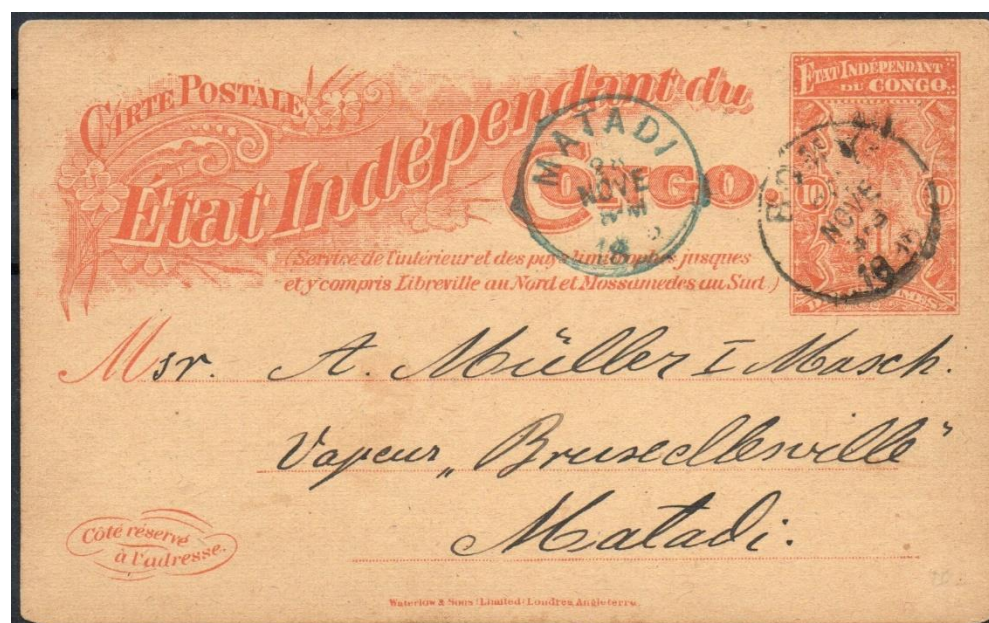 CARTE POSTALE
État Indépendant du
CONGO
(Service de l'intérieur et des pays limitrophes jusques
et y compris Libreville au Nord et Mossamedes au Sud.)
ETAT INDÉPENDANT
DU CONGO
10 10
MATADI
NOVE
NOVE
Msr. A. Müller I Masch.
Vapeur „Bruxellesville“
Matadi.
Côté réservé
à l'adresse.
Waterlow & Sons Limited Londres Angleterre